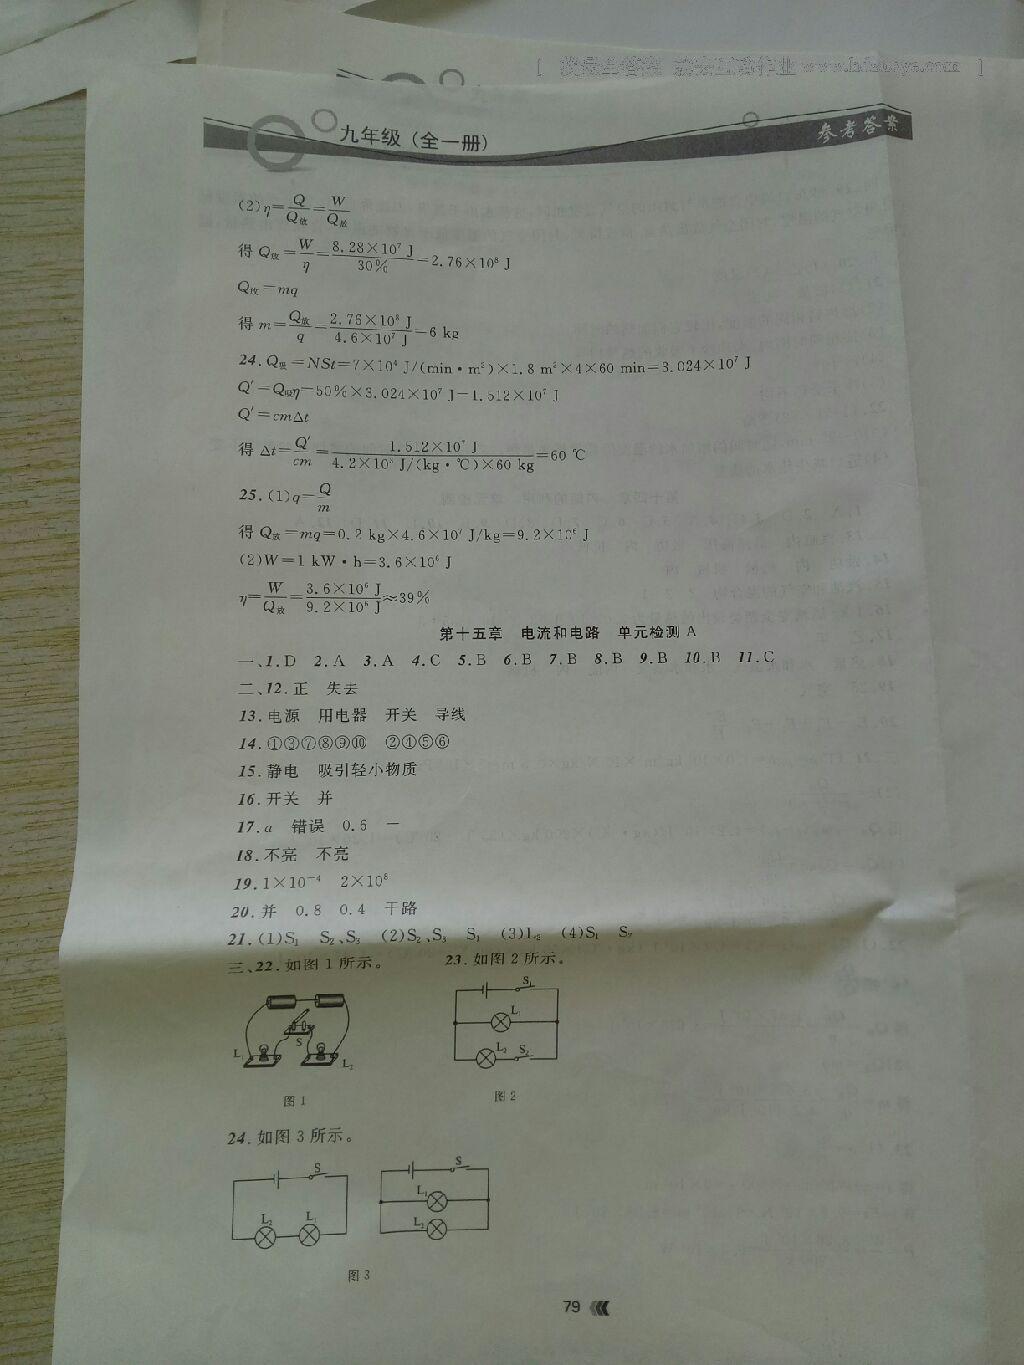 www.1010jiajiao.com
九年级（全一册）
参考答案
(2)η=Q/Q放=W/Q放
得 Q放=W/η=8.28×10⁷ J/30%=2.76×10⁸ J
Q放=mq
得 m=Q放/q=2.76×10⁸ J/4.6×10⁷ J=6 kg
24.Q吸=NSt=7×10⁴ J/(min·m²)×1.8 m²×4×60 min=3.024×10⁷ J
Q′=Q吸η=50%×3.024×10⁷ J=1.512×10⁷ J
Q′=cmΔt
得 Δt=Q′/cm=1.512×10⁷ J/4.2×10³ J/(kg·℃)×60 kg=60 ℃
25.(1)q=Q/m
得 Q放=mq=0.2 kg×4.6×10⁷ J/kg=9.2×10⁶ J
(2)W=1 kW·h=3.6×10⁶ J
η=W/Q放=3.6×10⁶ J/9.2×10⁶ J≈39%
第十五章 电流和电路 单元检测 A
一、1.D 2.A 3.A 4.C 5.B 6.B 7.B 8.B 9.B 10.B 11.C
二、12.正 失去
13.电源 用电器 开关 导线
14.①③⑦⑧⑨⑩ ②④⑤⑥
15.静电 吸引轻小物质
16.开关 并
17.a 错误 0.5 一
18.不亮 不亮
19.1×10⁻⁴ 2×10⁸
20.并 0.8 0.4 干路
21.(1)S₁ S₂、S₃ (2)S₂、S₃ S₁ (3)L₂ (4)S₁ S₂
三、22.如图 1 所示。 23.如图 2 所示。
S₁
L₁
L₂ S₂
S
L₁ L₂
图 1 图 2
24.如图 3 所示。
S S
L₂ L₁ L₁
L₂
图 3
79